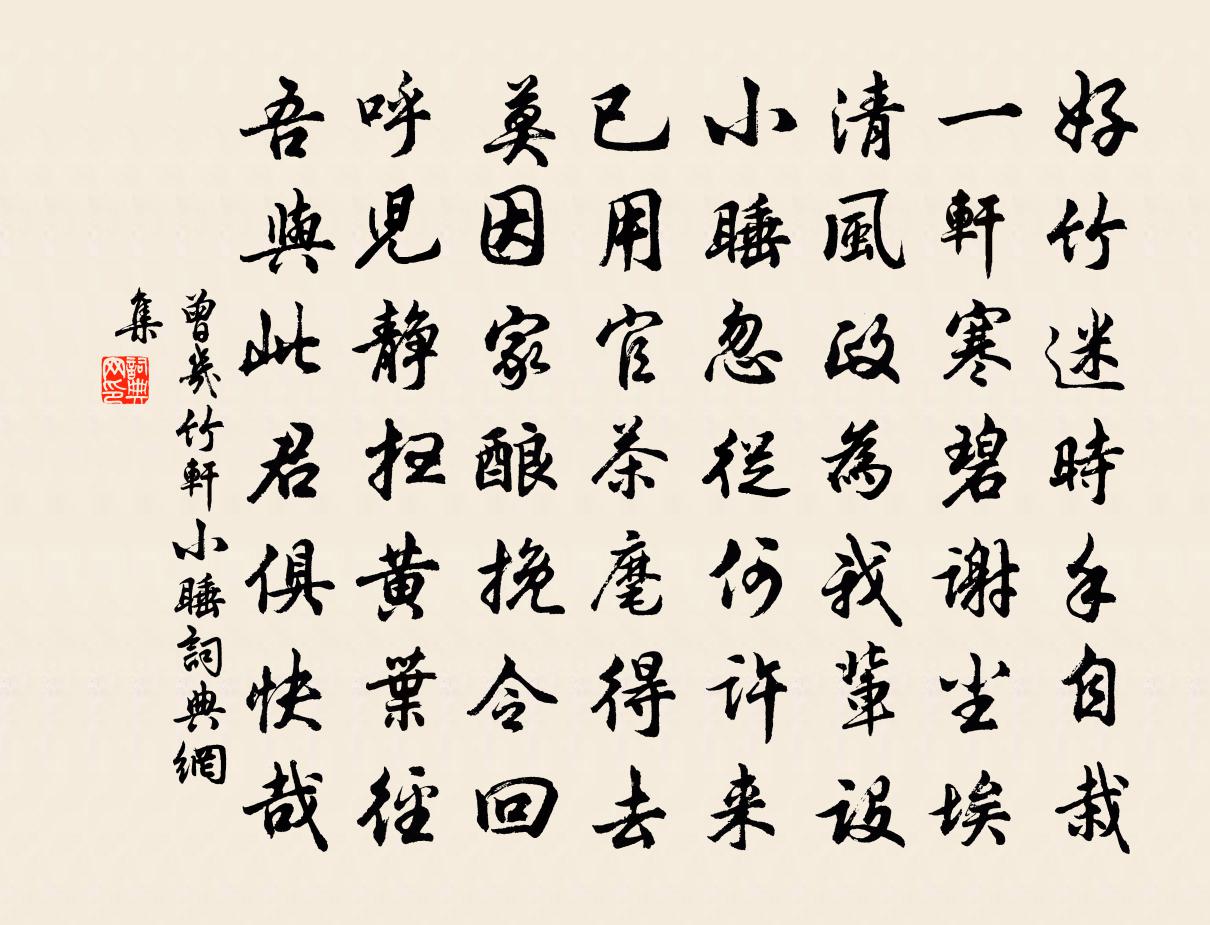 好竹迷時手自栽
一軒寒碧謝尘埃
清風政為我輩設
小睡忽從何許来
已用官茶麾得去
莫因家酿挽令回
呼児静扫黄葉徑
吾與此君俱快哉
曾幾竹軒小睡詞典網
集
詞典
网印